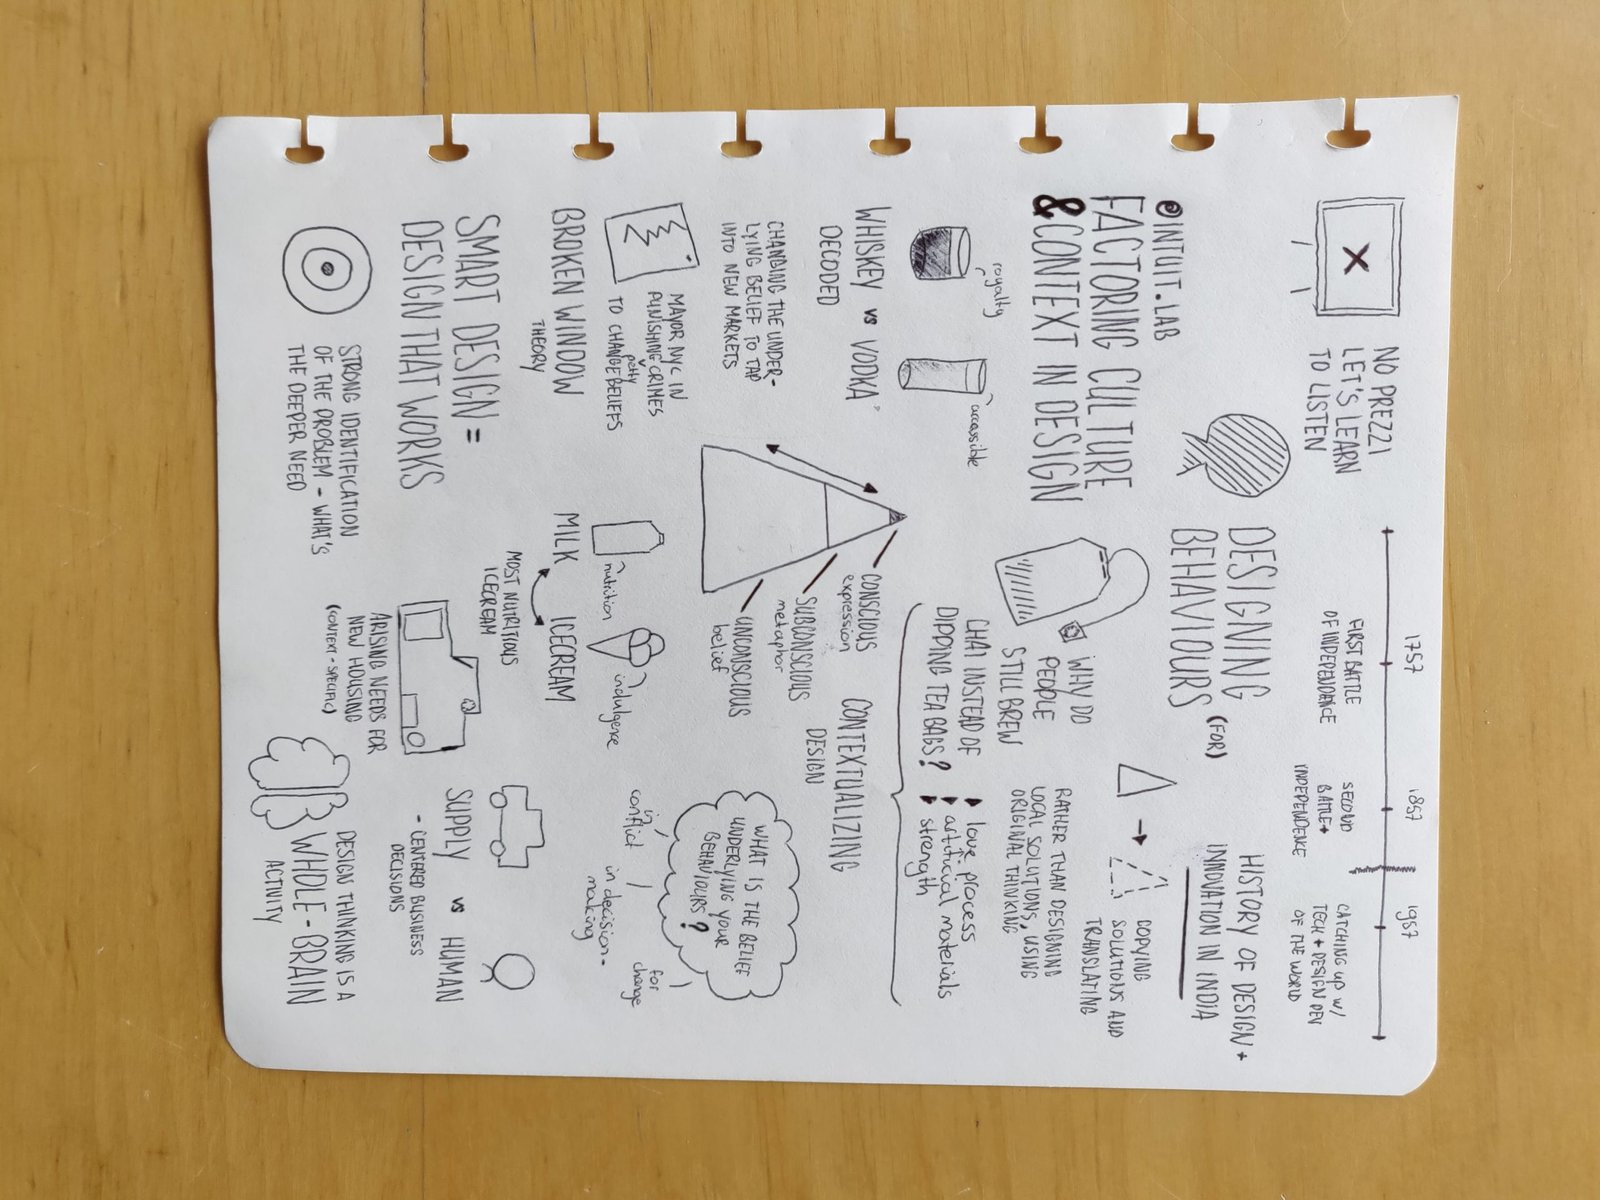 NO PREZZI
LET'S LEARN
TO LISTEN
1757
1857
1957
FIRST BATTLE
OF INDEPENDANCE
SECOND
BATTLE +
INDEPENDENCE
CATCHING UP W/
TECH + DESIGN DEV
OF THE WORLD
@INTUIT.LAB
FACTORING CULTURE
& CONTEXT IN DESIGN
DESIGNING
(FOR)
BEHAVIOURS
HISTORY OF DESIGN +
INNOVATION IN INDIA
COPYING
SOLUTIONS AND
TRANSLATING
RATHER THAN DESIGNING
LOCAL SOLUTIONS, USING
ORIGINIAL THINKING
WHY DO
PEOPLE
STILL BREW
CHAI INSTEAD OF
DIPPING TEA BAGS?
love - process
artificial materials
strength
royalty
accessible
WHISKEY vs VODKA
DECODED
CHANGING THE UNDER-
LYING BELIEF TO TAP
INTO NEW MARKETS
CONSCIOUS
expression
SUBCONSCIOUS
metaphor
UNCONSCIOUS
belief
CONTEXTUALIZING
DESIGN
WHAT IS THE BELIEF
UNDERLYING YOUR
BEHAVIOURS?
in
conflict
in decision-
making
for
change
MAYOR NYC IN
PUNISHING petty CRIMES
TO CHANGE BELIEFS
BROKEN WINDOW
THEORY
nutrition
indulgence
MILK
ICECREAM
MOST NUTRITIOUS
ICECREAM
SMART DESIGN =
DESIGN THAT WORKS
STRONG IDENTIFICATION
OF THE PROBLEM - WHAT'S
THE DEEPER NEED
ARISING NEEDS FOR
NEW HOUSING
(CONTEXT - SPECIFIC)
SUPPLY vs HUMAN
- CENTERED BUSINESS
DECISIONS
DESIGN THINKING IS A
WHOLE - BRAIN
ACTIVITY